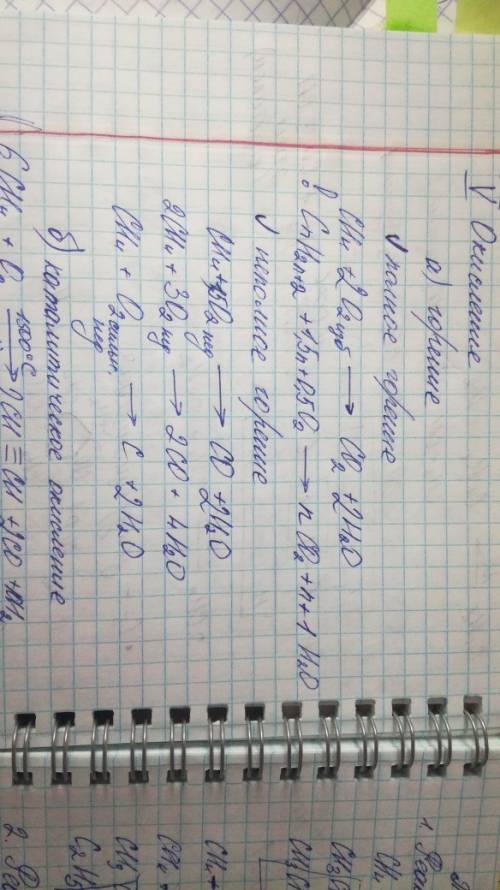 V Окисление
а) горение
√ полное горение
CH₄ + 2O₂ изб → CO₂ + 2H₂O
! CnH2n+2 + 1,5n+0,5O₂ → n CO₂ + n+1 H₂O
√ неполное горение
CH₄ + 1,5O₂ нед → CO + 2H₂O
2CH₄ + 3O₂ нд → 2CO + 4H₂O
CH₄ + O₂ сильн нед → C + 2H₂O
б) каталитическое окисление
6 CH₄ + O₂ 1500°C → CH≡CH + 2CO + H₂
1. Реак
CH₄
CH3
CH3C
CH₄ +
CH₄ +
CH3
C₂H5
2. Ре